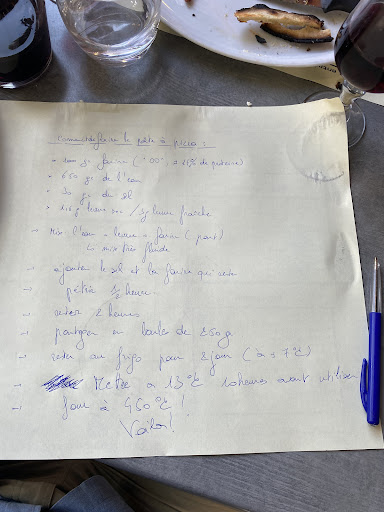 Comment faire la pâte à pizza :
• 1000 gr farine ("00" = 14% de protéine)
• 650 gr de l'eau
• 30 gr du sel
• levure sec / 3g levure fraîche
→ mix l'eau + levure + farine (part)
↳ mix très fluide
→ ajouter le sel et la farine qui reste
→ pétrir 1/2 heure
→ rester 2 heures
→ partager en boules de 250g
→ rester au frigo pour 2 jour (à 7°C)
→ Mettre a 13°C 10 heures avant utiliser
→ four à 450°C !
Voilà !